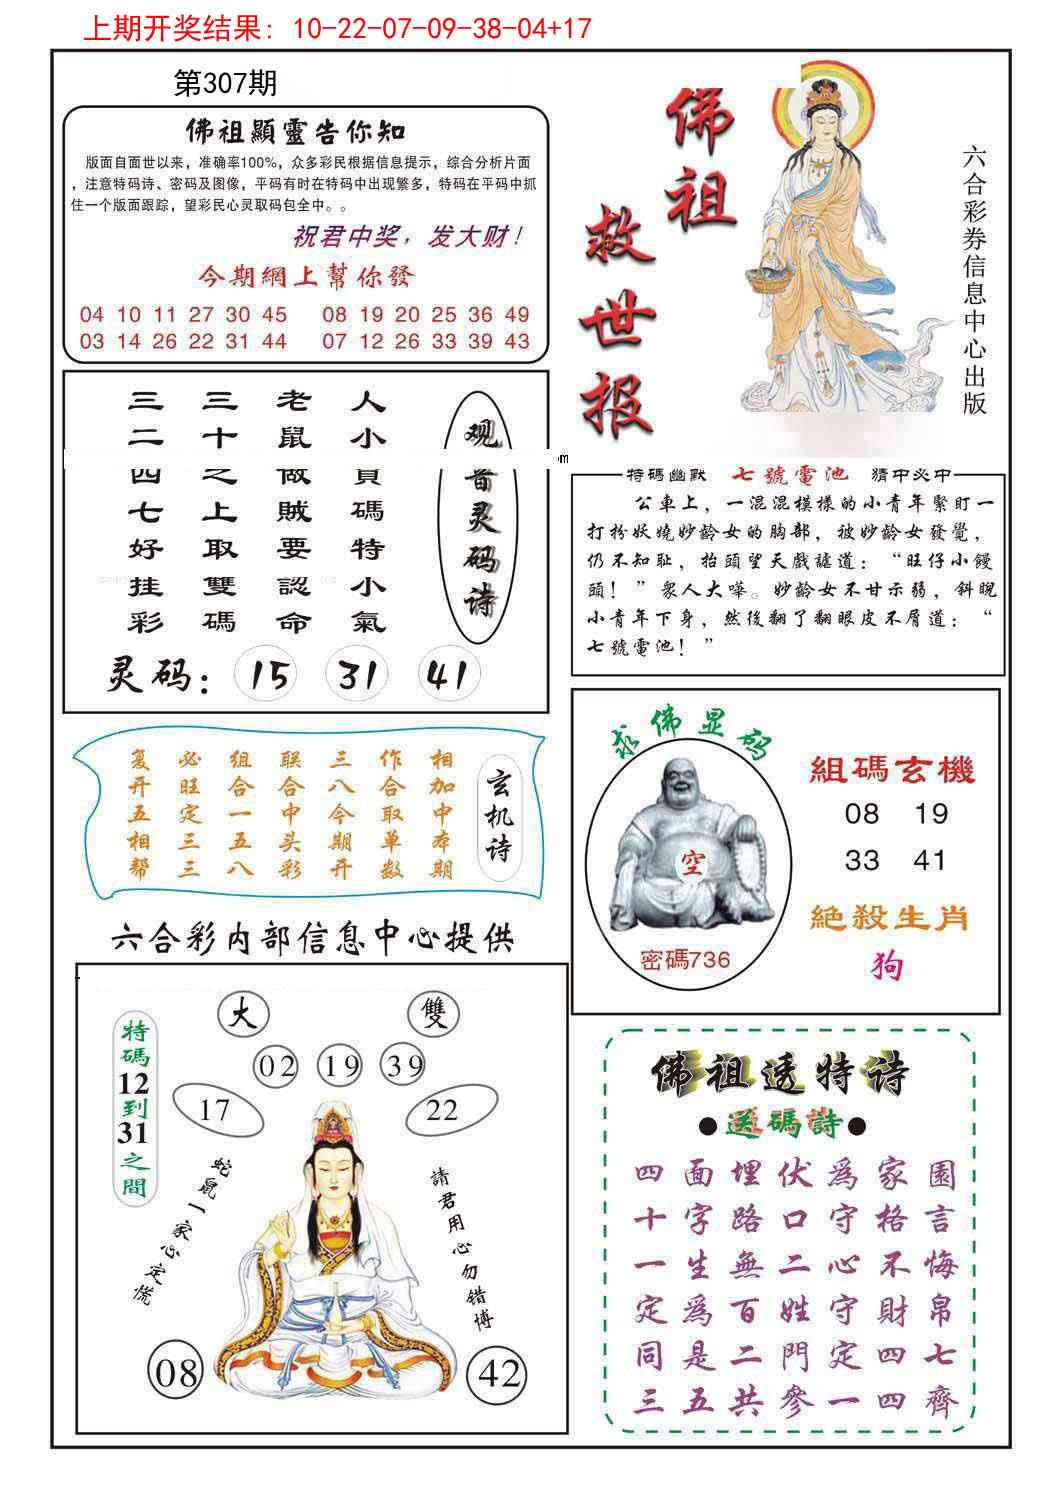 上期开奖结果: 10-22-07-09-38-04+17
第307期
佛祖顯靈告你知
版面自面世以来，准确率100%，众多彩民根据信息提示，综合分析片面
，注意特码诗、密码及图像，平码有时在特码中出现繁多，特码在平码中抓
住一个版面跟踪，望彩民心灵取码包全中。。
祝君中奖，发大财！
今期網上幫你發
04 10 11 27 30 45 08 19 20 25 36 49
03 14 26 22 31 44 07 12 26 33 39 43
佛祖
救世报
六合彩券信息中心出版
观音灵码诗
人小貟碼特小氣
老鼠做賊要認命
三十之上取雙碼
三二四七好挂彩
灵码：15 31 41
特碼幽默 七號電池 猜中必中
公車上，一混混模樣的小青年緊盯一
打扮妖嬈妙齡女的胸部，被妙齡女發覺，
仍不知耻，抬頭望天戲謔道：“旺仔小饅
頭！”衆人大嘩。妙齡女不甘示弱，斜睨
小青年下身，然後翻了翻眼皮不屑道：“
七號電池！”
玄机诗
相加中本期
作合取单数
三八今期开
联合中头彩
组合一五八
必旺定三三
复开五相帮
求佛显码
空
密碼736
組碼玄機
08 19
33 41
絕殺生肖
狗
六合彩内部信息中心提供
大 雙
02 19 39
17 22
特碼12到31之間
蛇鼠一家心定慌
請君用心勿错博
08 42
佛祖透特诗
●送碼詩●
四面埋伏爲家園
十字路口守格言
一生無二心不悔
定爲百姓守財帛
同是二門定四七
三五共參一四齊